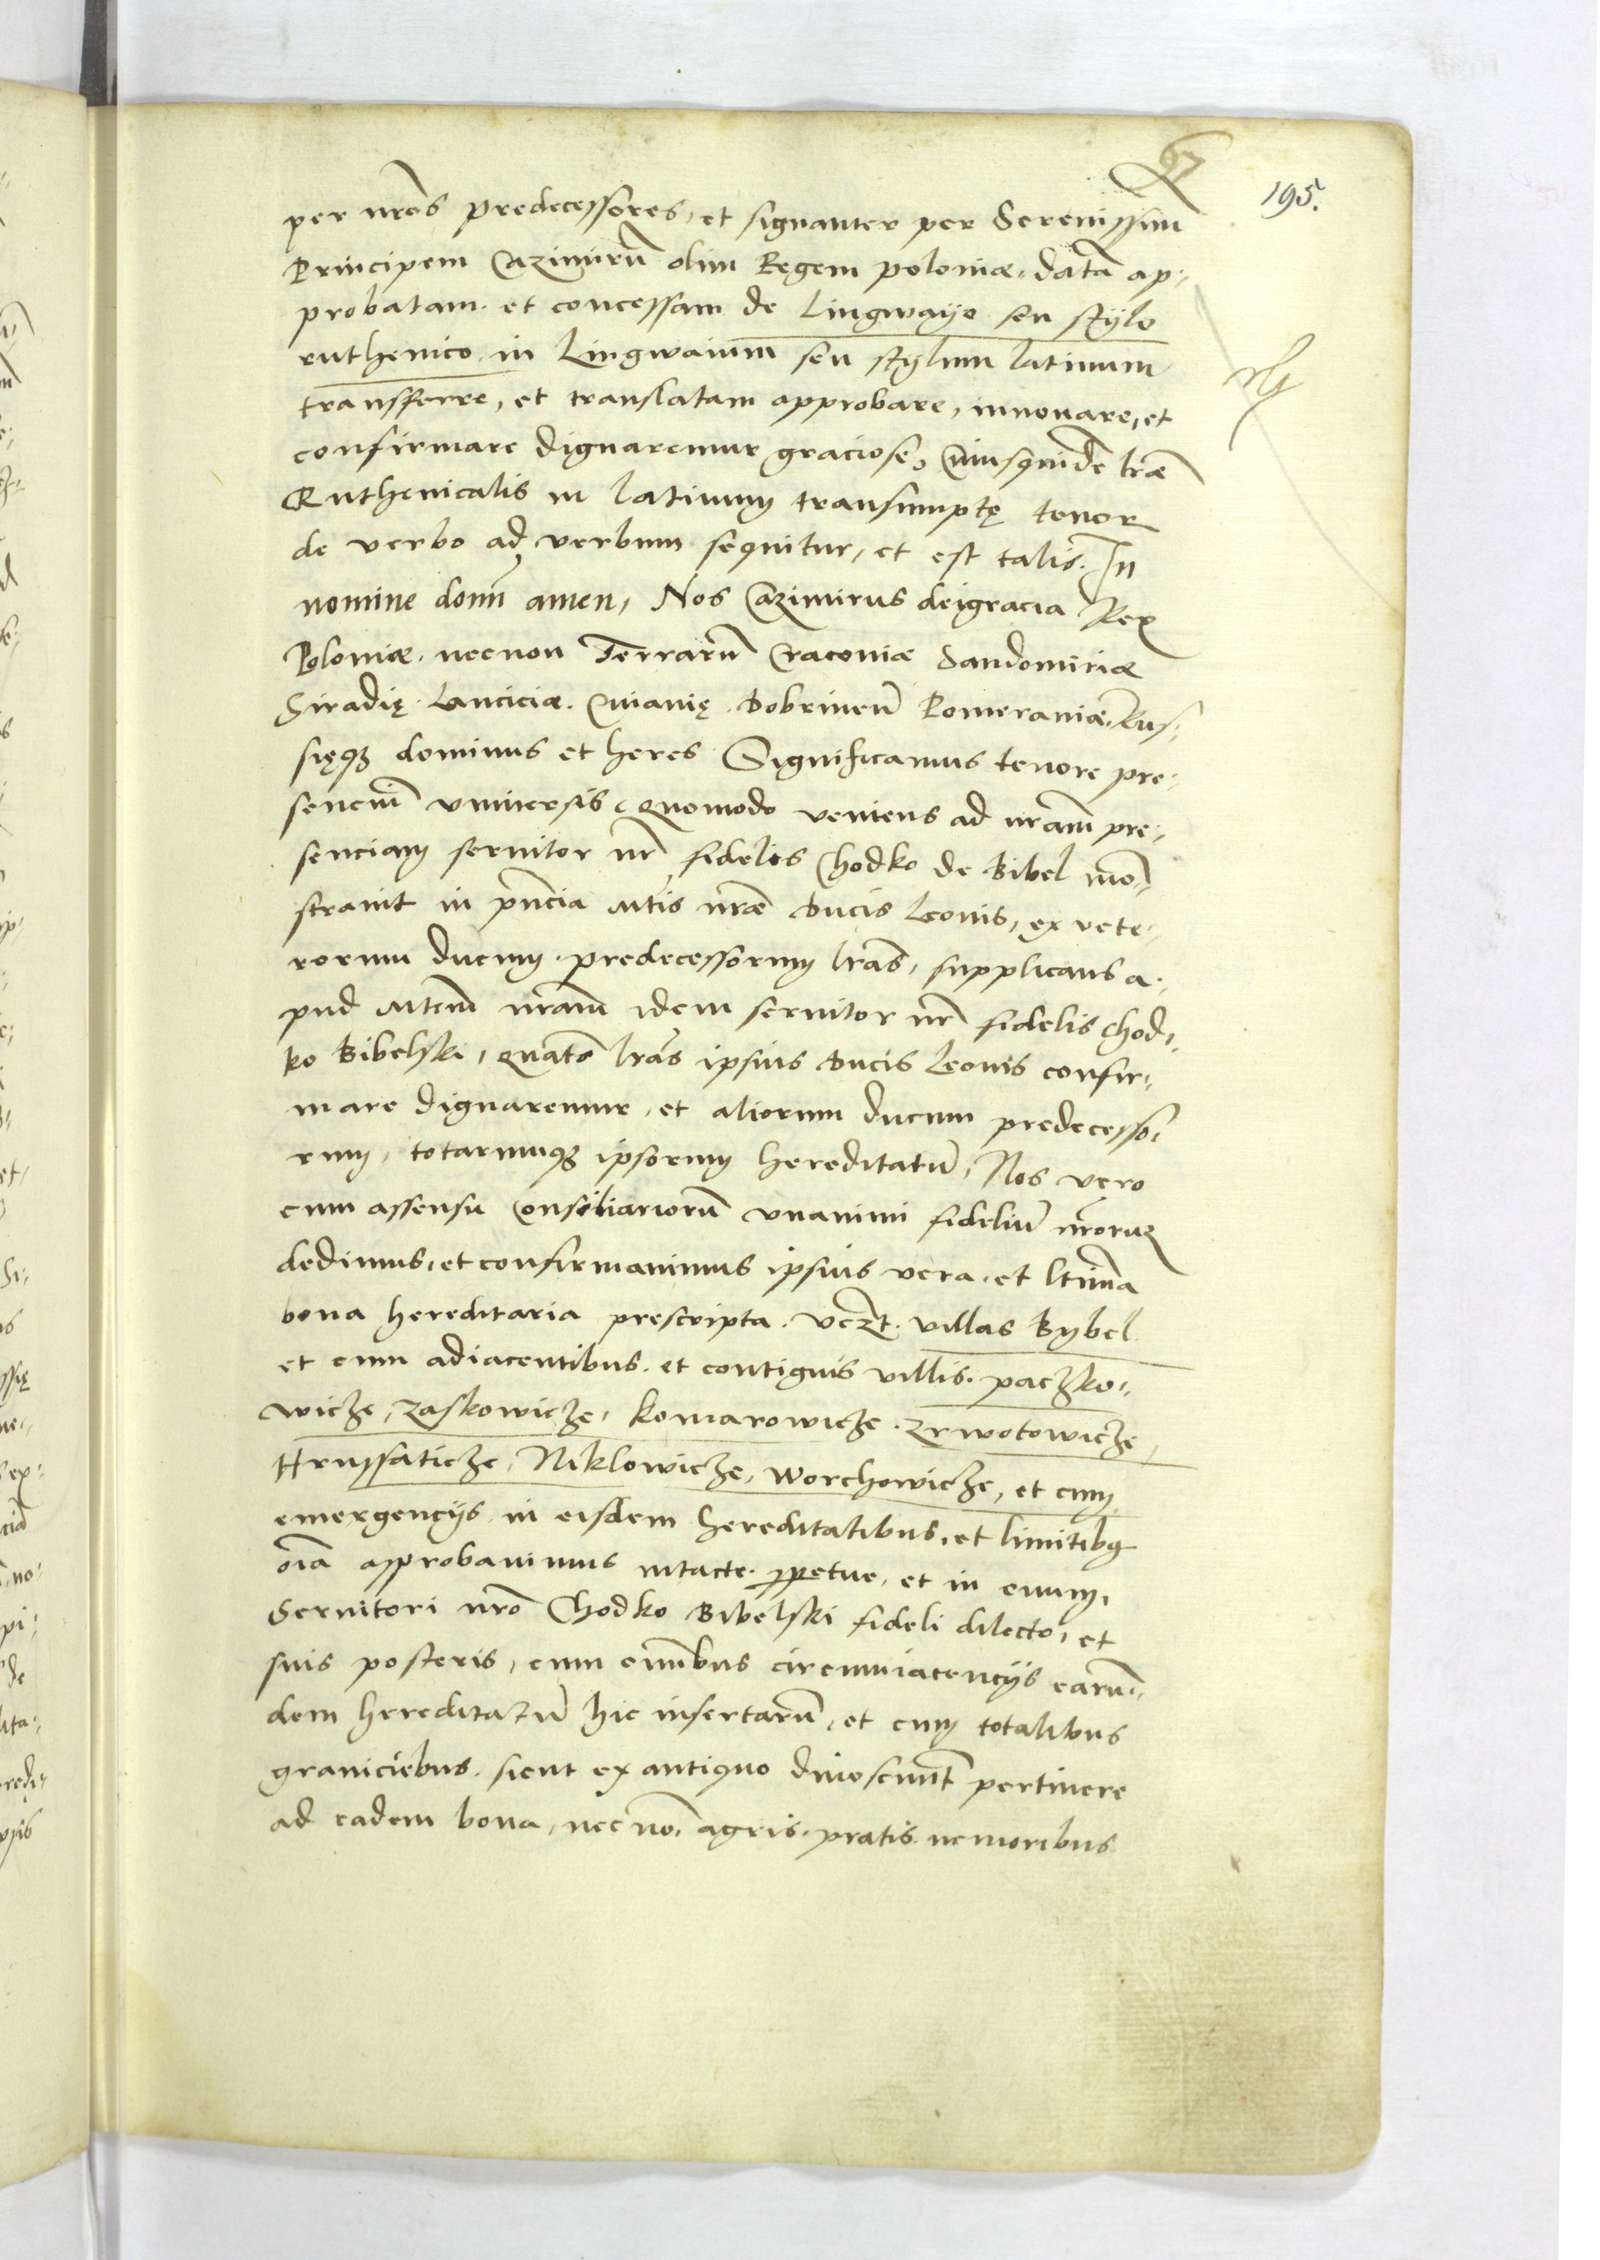 195.
per nr̃os predecessores, et signanter per Serenissimũ
Principem Cazimirũ olim Regem poloniæ, datã ap,
probatam et concessam de Lingwayo seu stylo
ruthenico in Lingwaium seu stylum latinum
transfferre, et translatam approbare, innouare, et
confirmare dignaremur graciose, Cuiusquidẽ lr̃æ
Ruthenicalis in latinum transumptę tenor
de verbo ad verbum sequitur, et est talis. In
nomine domĩ amen, Nos Cazimirus deigracia Rex
Poloniæ, necnon Terrarũ Cracouiæ Sandomiriæ
Siradię Lanciciæ. Cuiauię. Dobrineñ Pomeraniæ, Rus,
sięqꝫ dominus et heres Significamus tenore pre,
senciũ vniuersis Quomodo veniens ad nr̃am pre,
senciam seruitor nr̃ fidelis Chodko de Bibel mõ,
strauit in pñcia Mtis nr̃æ Ducis Leonis, ex vete,
rorum ducum predecessorum lr̃as, supplicans a,
pud Mtem nr̃am idem seruitor nr̃ fidelis Chod,
ko Bibelski, quatõ lr̃as ipsius Ducis Leonis confir,
mare dignaremur, et aliorum ducum predecesso,
rum, totarumqꝫ ipsorum hereditatũ, Nos vero
cum assensu Consiliariorũ vnanimi fideliũ nr̃oruꝫ
dedimus, et confirmauimus ipsius vera, et ltĩma
bona hereditaria prescripta. vcꝫt. villas Bybel
et cum adiacentibus et contiguis villis. paczko,
wicze, Zaskowicze, Komarowicze. Zrwotowicze,
Hrussaticze, Niklowicze, Worchowicze, et cum
emergencijs in eisdem hereditatibus, et limitibꝫ
oĩa approbauimus intacte. ꝑpetue, et in euum,
Seruitori nr̃o Chodko Bibelski fideli dilecto, et
suis posteris, cum omnibus circumiacencijs earũ,
dem hereditatũ hic insertarũ, et cum totalibus
graniciebus. sicut ex antiquo dinoscunt̃ pertinere
ad eadem bona, nec nõ, agris. pratis nemoribus